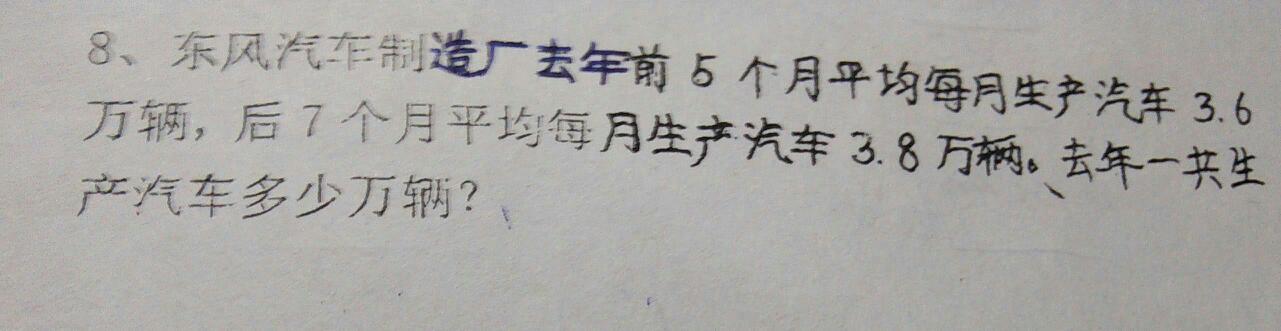 8、东风汽车制造厂去年前5个月平均每月生产汽车3.6
万辆，后7个月平均每月生产汽车3.8万辆。去年一共生
产汽车多少万辆？